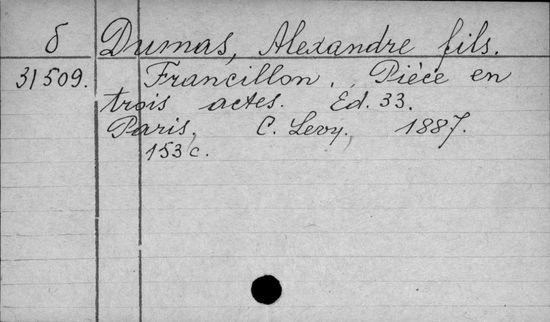 б Dumas, Alexandre fils.
31509. Francillon. Pièce en
trois actes. Ed. 33.
Paris, C. Levy, 1887.
153 c.